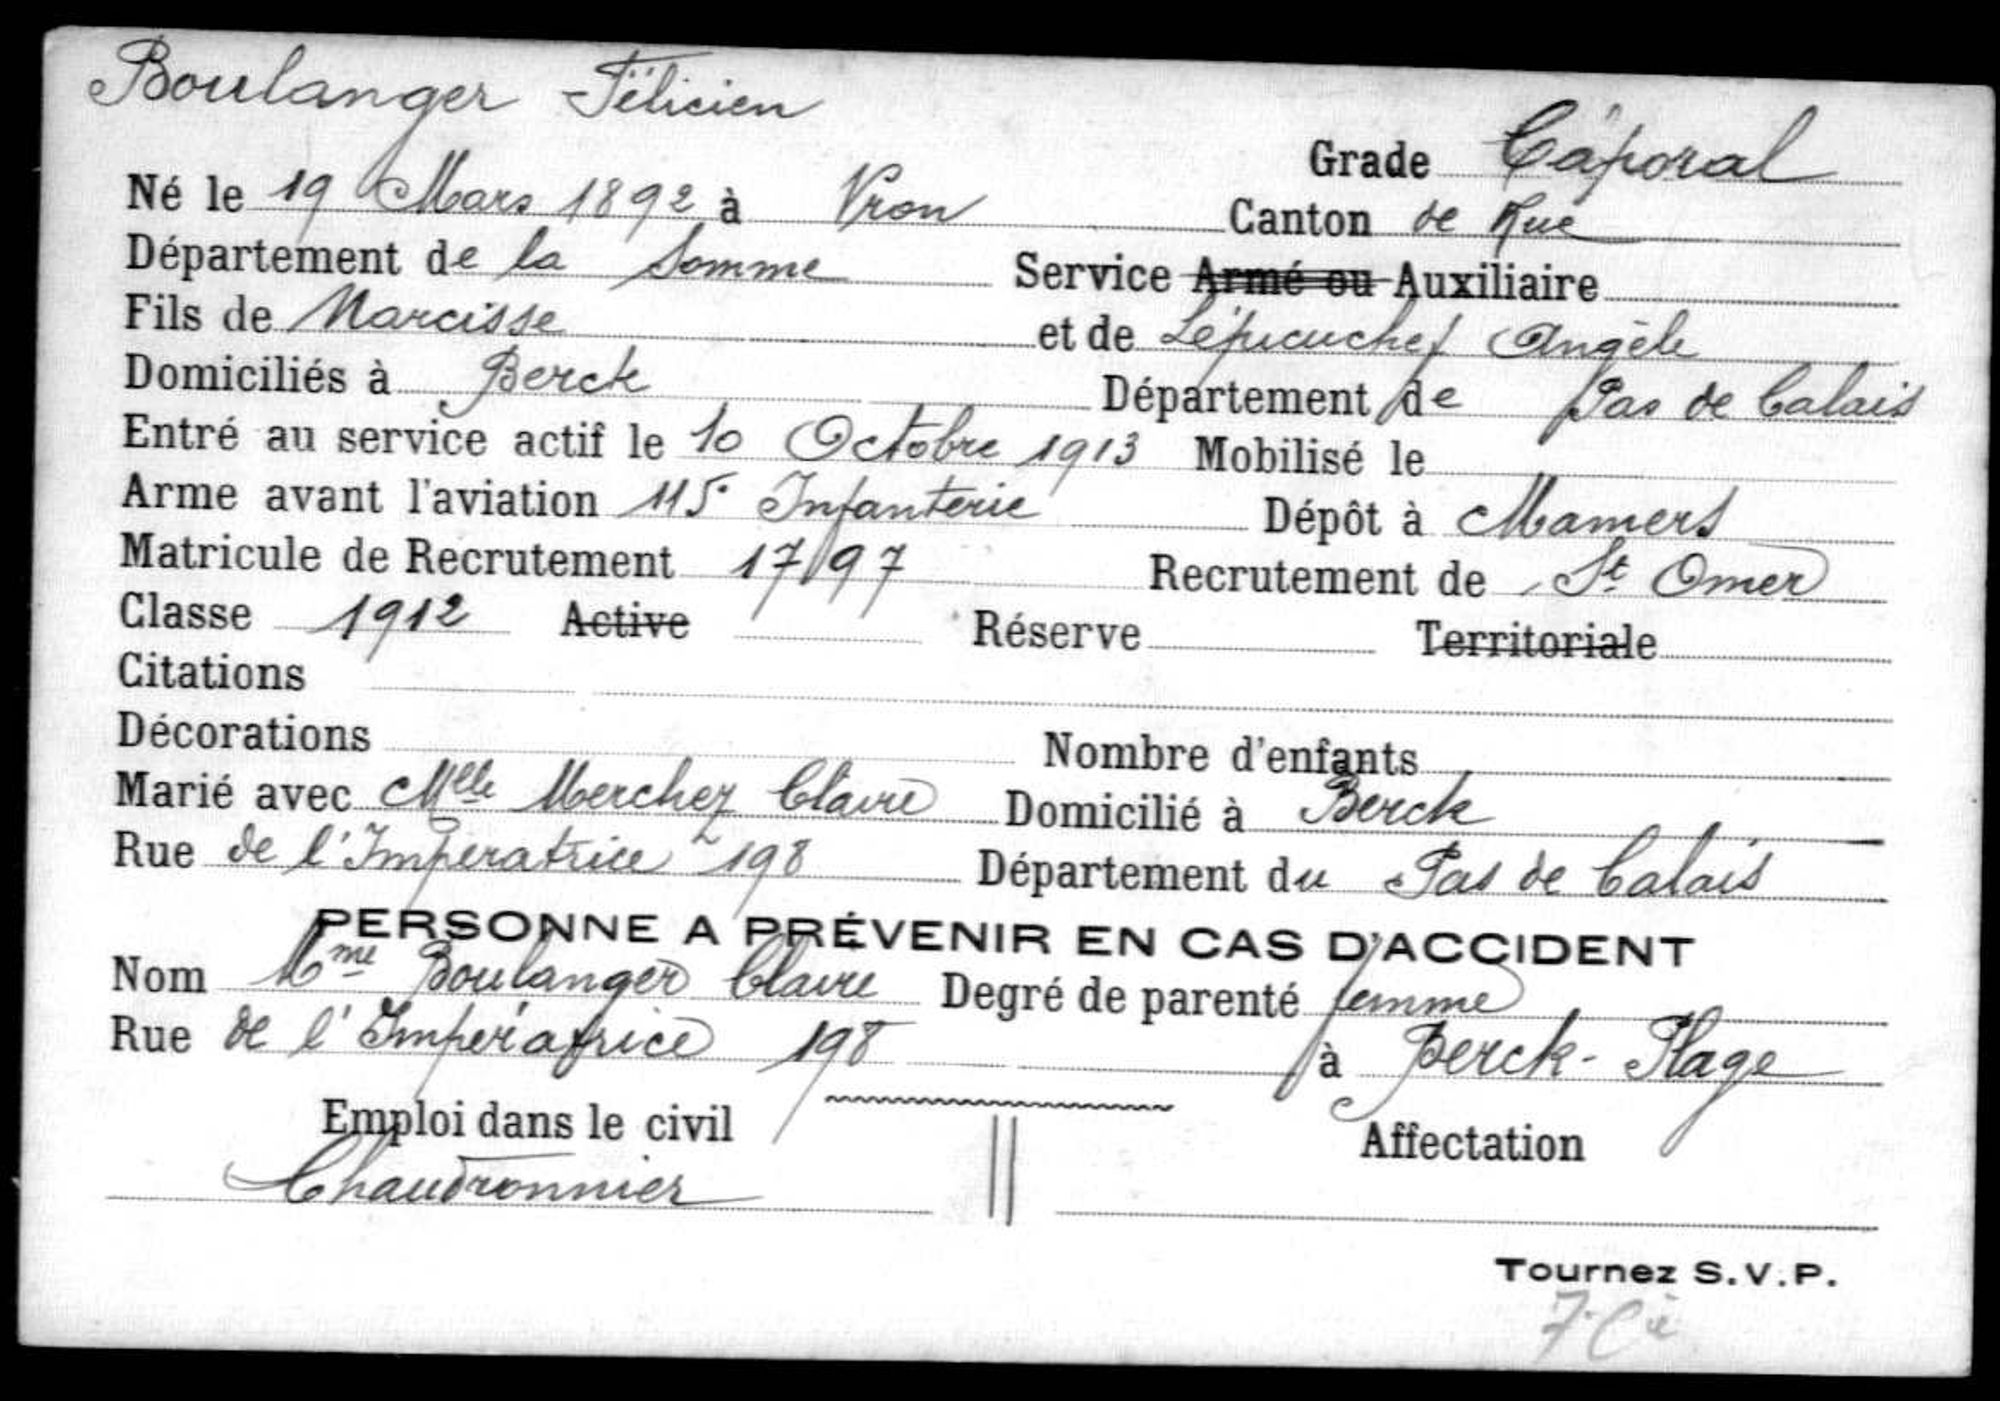 Boulanger Félicien
Grade Caporal
Né le 19 Mars 1892 à Vron Canton de Rue
Département de la Somme Service Armé ou Auxiliaire
Fils de Narcisse et de Angèle
Domiciliés à Berck Département de Pas de Calais
Entré au service actif le 10 Octobre 1913 Mobilisé le
Arme avant l'aviation 115e Infanterie Dépôt à Mamers
Matricule de Recrutement 1797 Recrutement de St Omer
Classe 1912 Active Réserve Territoriale
Citations
Décorations Nombre d'enfants
Marié avec Mlle Merchez Claire Domicilié à Berck
Rue de l'Impératrice 198 Département du Pas de Calais
PERSONNE A PRÉVENIR EN CAS D'ACCIDENT
Nom Mme Boulanger Claire Degré de parenté femme
Rue de l'Impératrice 198 à Berck-Plage
Emploi dans le civil Affectation
Chaudronnier
Tournez S.V.P.
7 Cie